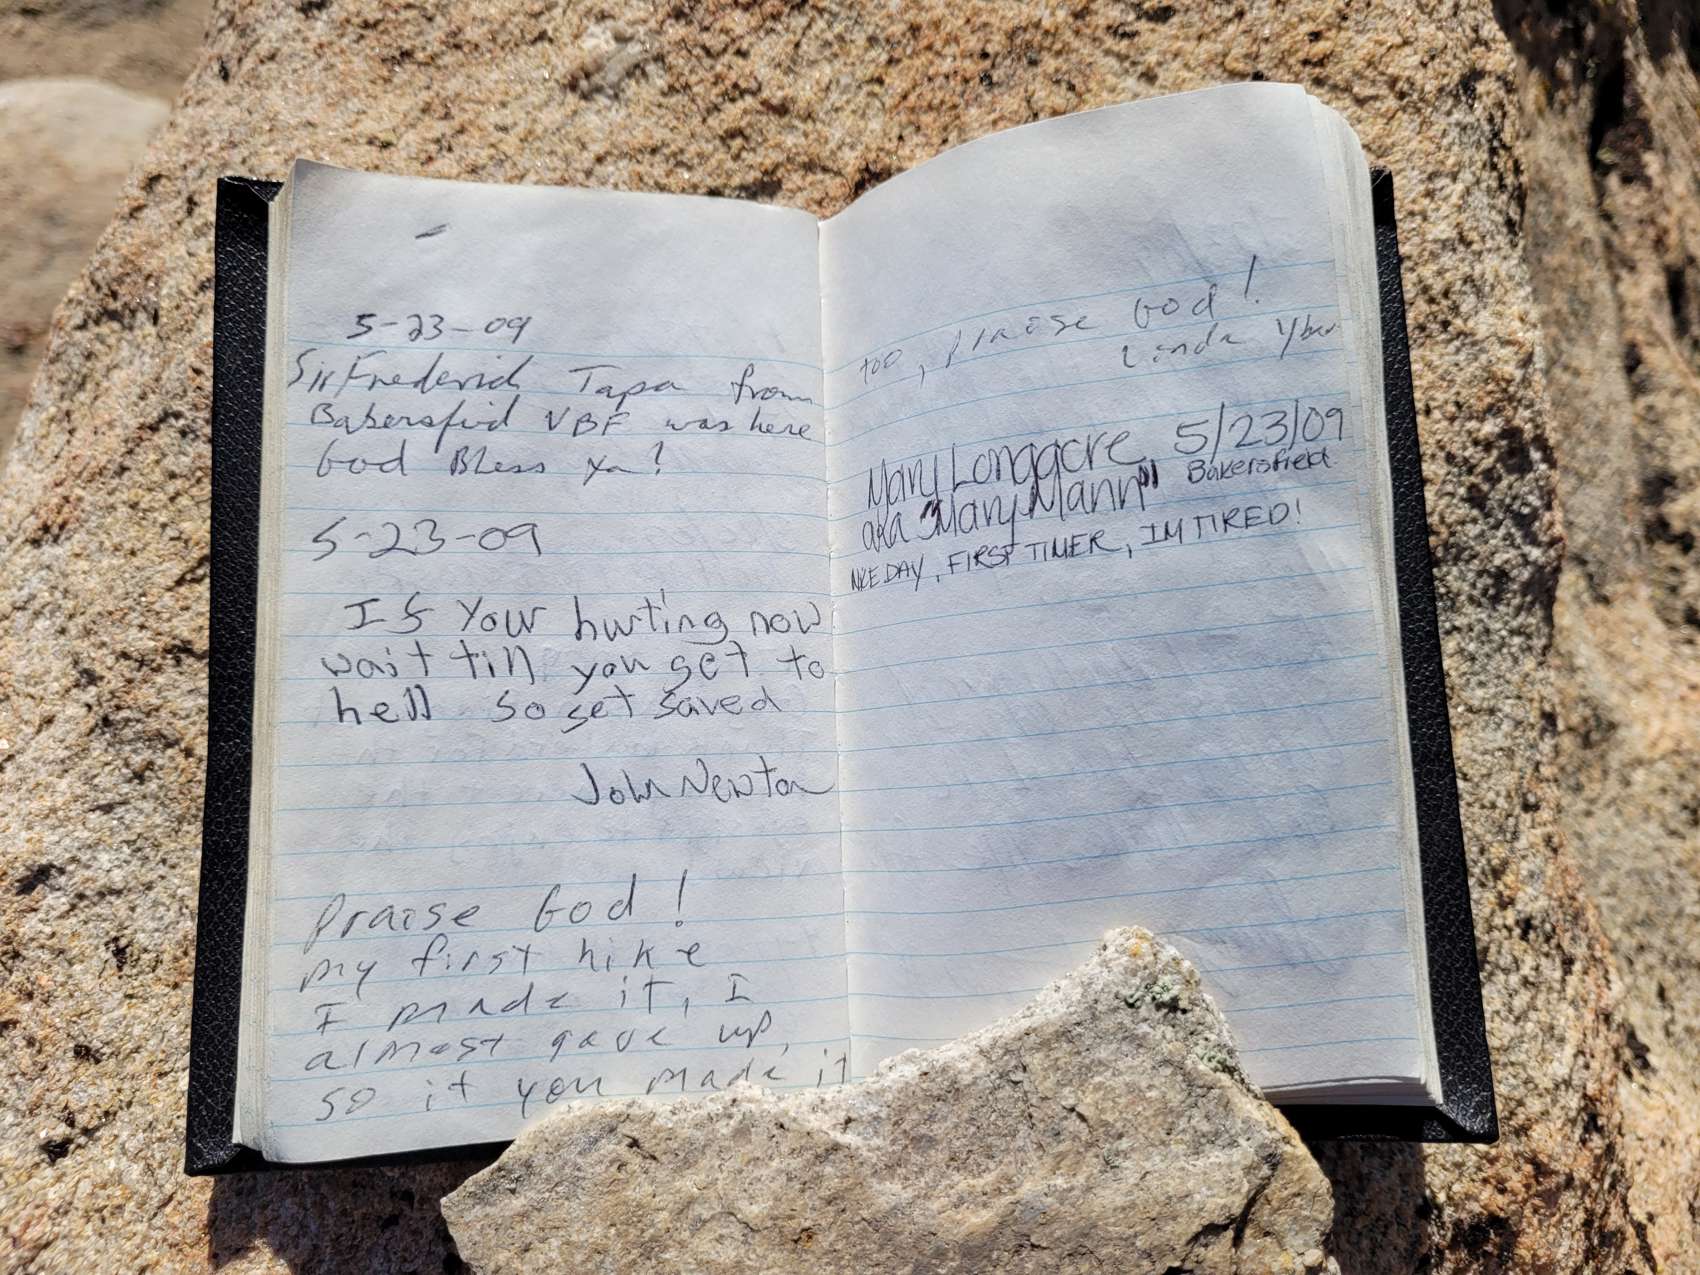 5-23-09
Sir Frederick Tapa from
Bakersfield VBF was here
God Bless Ya!
5-23-09
If Your hurting now
wait till you get to
hell so get saved
John Newton
Praise God!
my first hike
I made it, I
almost gave up,
so if you made it
too, praise God!
Linda
Mary Longacre 5/23/09
aka "Mary Mann" Bakersfield
NICE DAY, FIRST TIMER, IM TIRED!